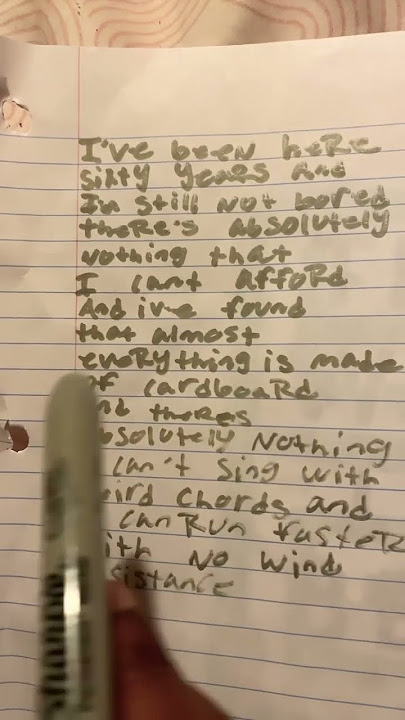 I've been here
sixty years and
Im still Not bored
there's absolutely
nothing that
I cant afford
And ive found
that almost
everything is made
of cardboard
and theres
absolutely Nothing
can't sing with
chords and
can Run faster
with No wind